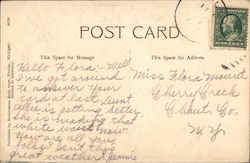 POST CARD
This Space for Message
This Space for Address
Hello Flora:- Well
I've got around
to answer your
card at last. Aunt
Allie is getting better
she is making that
white waist now.
How are all you
folks? Isn't this
great weather Jennie
Miss Flora Mount
Cherry Creek
Chaut. Co.
N.Y.